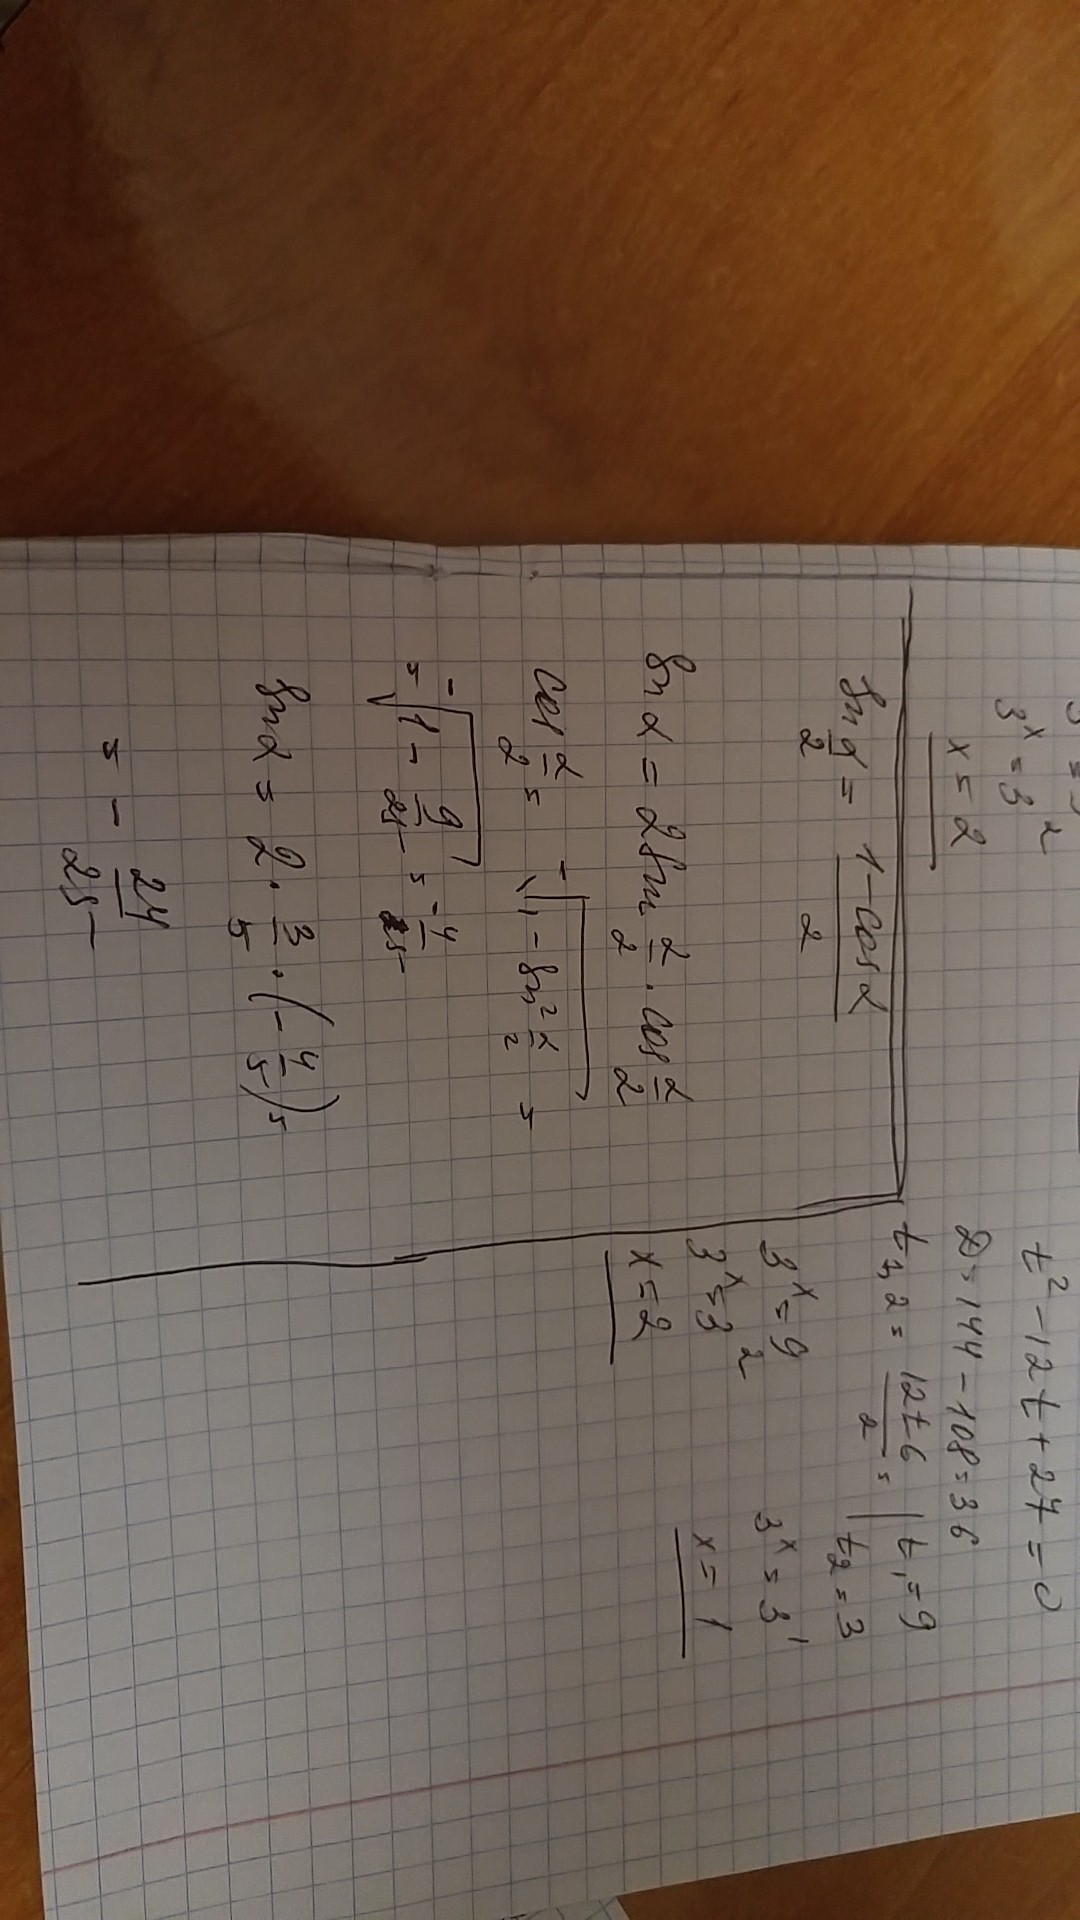 3ˣ = 3²
x = 2
sin α/2 = (1 - cos α)/2
sin α = 2 sin α/2 · cos α/2
cos α/2 = -√(1 - sin² α/2) =
= -√(1 - 9/25) = -4/5
sin α = 2 · 3/5 · (-4/5) =
= - 24/25
t² - 12t + 27 = 0
D = 144 - 108 = 36
t₁,₂ = (12 ± 6)/2 = | t₁ = 9
t₂ = 3
3ˣ = 9
3ˣ = 3²
x = 2
3ˣ = 3¹
x = 1